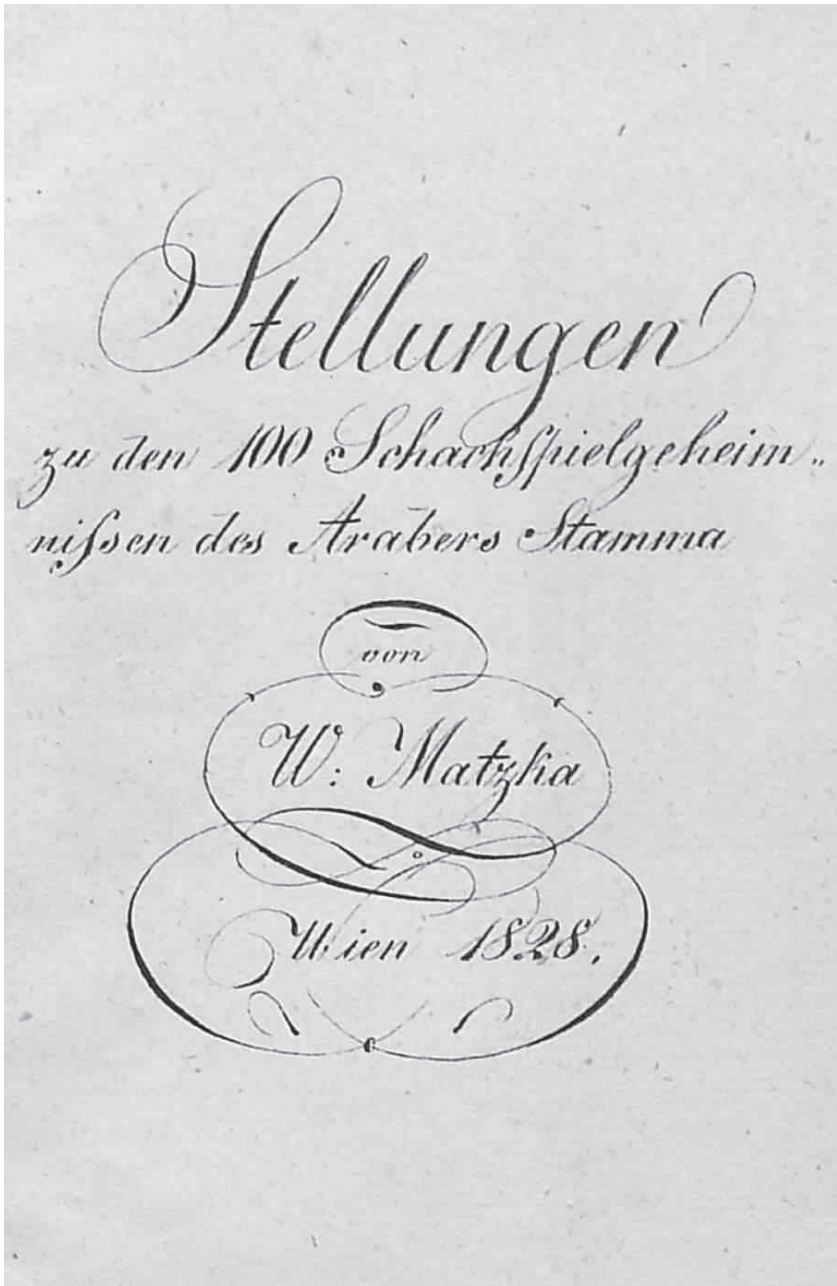 Stellungen
zu den 100 Schachſpielgeheim„
niſsen des Arabers Stamma
von
W: Matzka
Wien 1828.